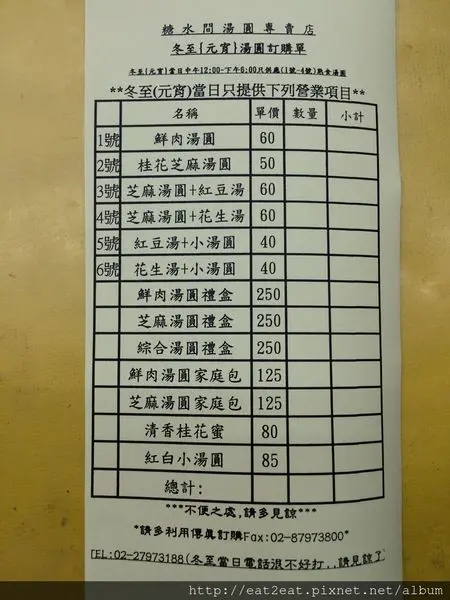 糖水問湯圓專賣店
冬至{元宵}湯圓訂購單
冬至{元宵}當日中午12:00-下午6:00只供應(1號~4號)熟食湯圓
**冬至(元宵)當日只提供下列營業項目**
名稱 單價 數量 小計
1號 鮮肉湯圓 60
2號 桂花芝麻湯圓 50
3號 芝麻湯圓+紅豆湯 60
4號 芝麻湯圓+花生湯 60
5號 紅豆湯+小湯圓 40
6號 花生湯+小湯圓 40
鮮肉湯圓禮盒 250
芝麻湯圓禮盒 250
綜合湯圓禮盒 250
鮮肉湯圓家庭包 125
芝麻湯圓家庭包 125
清香桂花蜜 80
紅白小湯圓 85
總計:
***不便之處,請多見諒***
*請多利用傳真訂購Fax:02-87973800*
TEL:02-27973188(冬至當日電話很不好打..,請見諒了
http://eat2eat.pixnet.net/album